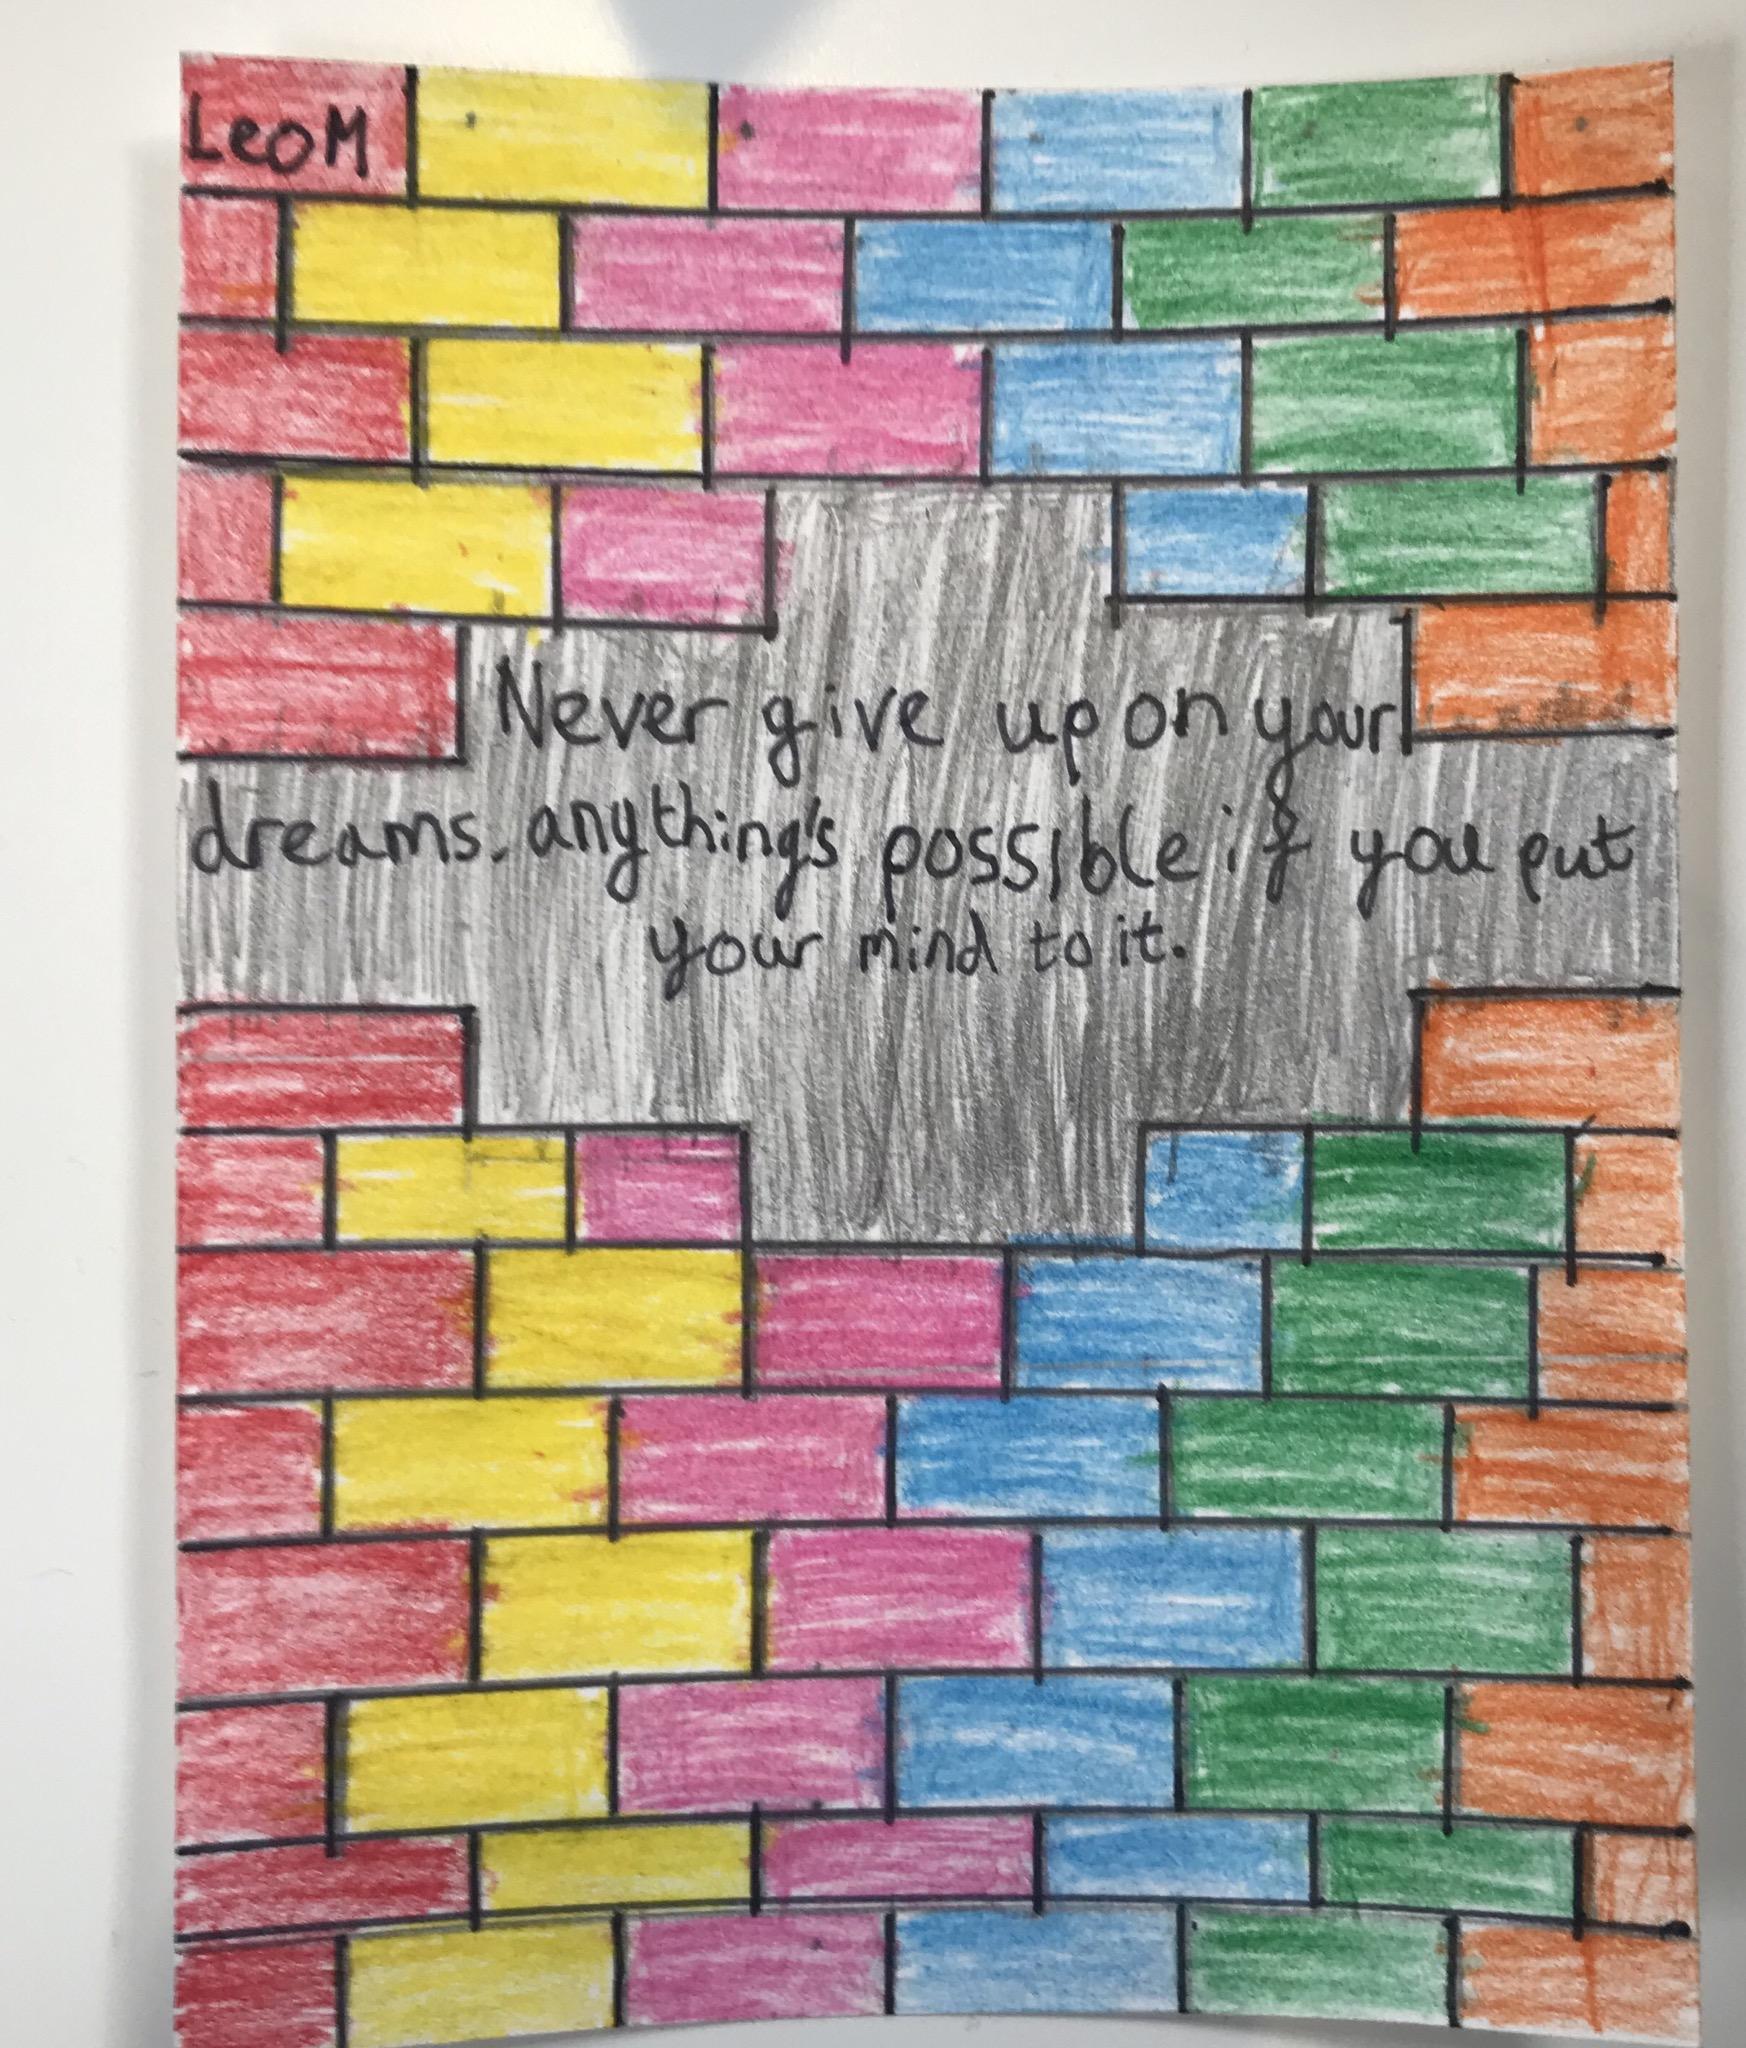 LeoM
Never give up on your
dreams. anything's possible if you put
your mind to it.